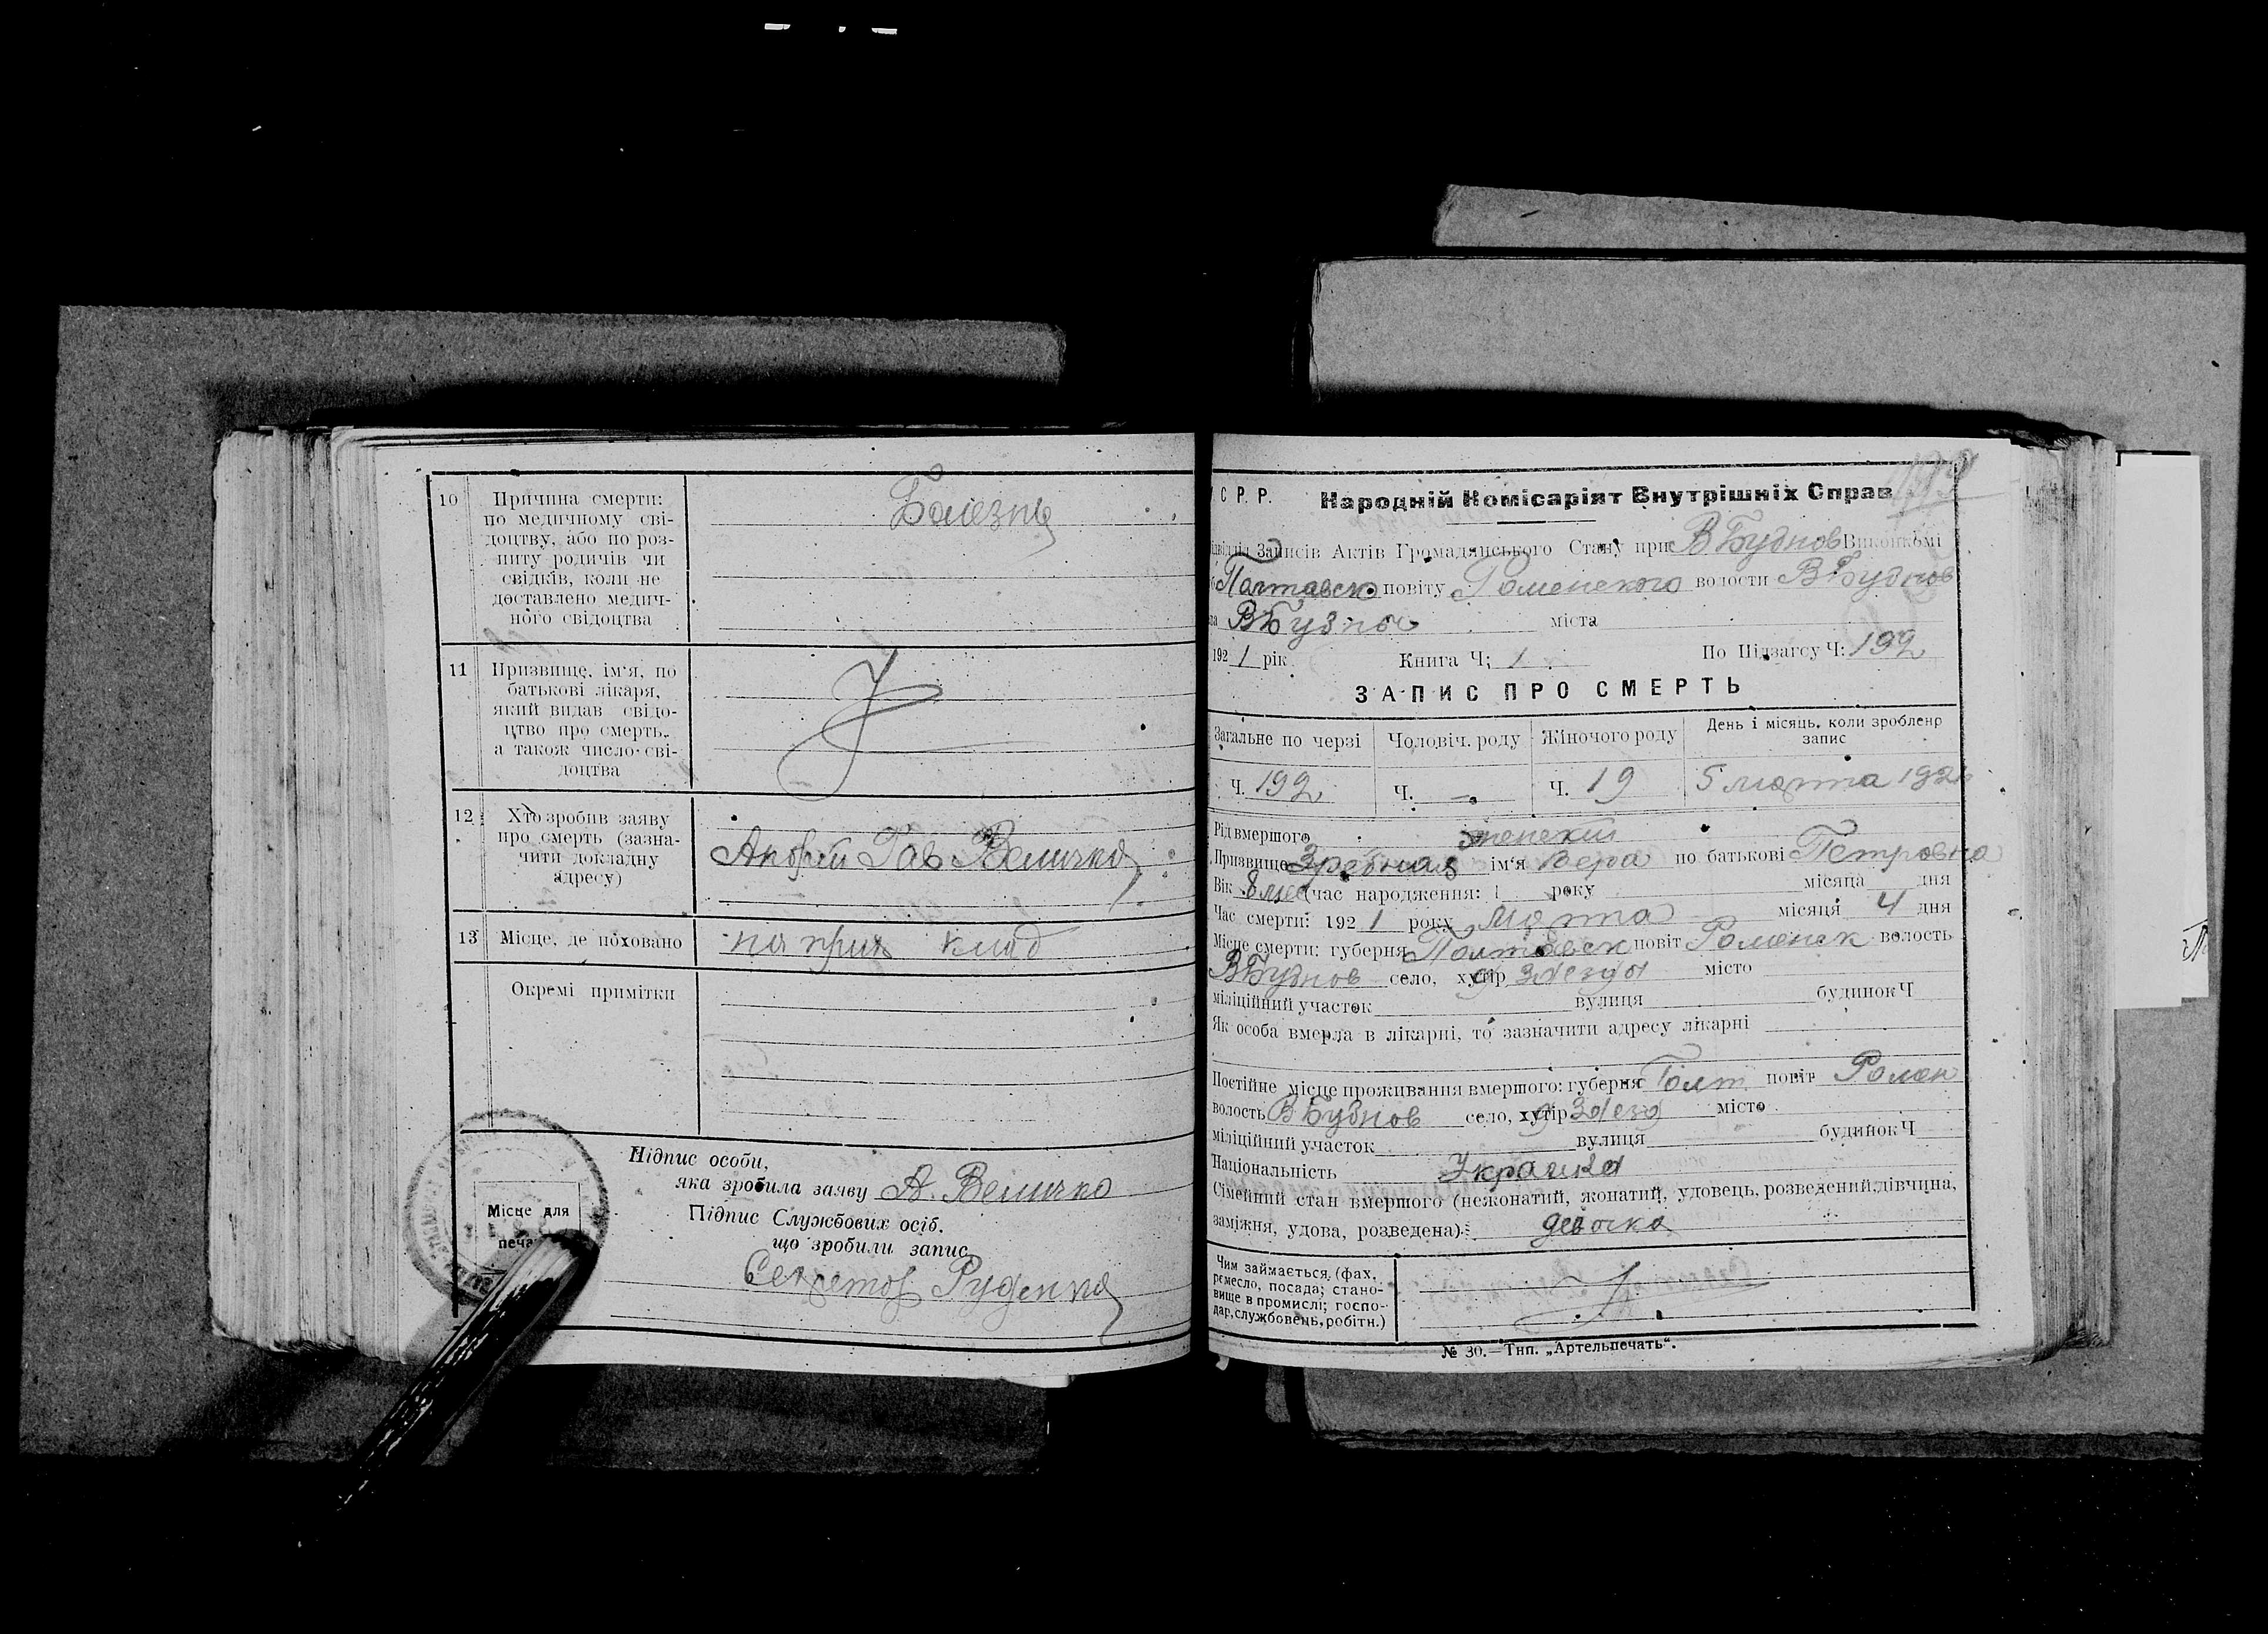 10 Причина смерти:
по медичному сві-
доцтву, або по роз-
питу родичів чи
свідків, коли не
доставлено медич-
ного свідоцтва
Болезнь
11 Призвище, ім'я, по
батькові лікаря,
який видав свідо-
цтво про смерть,
а також число сві-
доцтва
12 Хто зробив заяву
про смерть (зазна-
чити докладну
адресу)
Андрей Гав Величко
13 Місце, де поховано
на прих клад
Окремі примітки
Підпис особи,
яка зробила заяву А. Величко
Підпис Службових осіб.
що зробили запис
Секретар Руденко
Місце для
печа
С Р. Р. Народній Комісаріят Внутрішніх Справ
Записів Актів Громадянського Стану при ВБубнов Виконкомі
Полтавск повіту Роменского волости ВБубнов
ВБубнов міста
1921 рік Книга Ч: 1 По Підзагсу Ч: 192
ЗАПИС ПРО СМЕРТЬ
Загальне по черзі Чоловіч. роду Жіночого роду День і місяць, коли зроблено
запис
Ч. 192 Ч. — Ч. 19 5 марта 1921
Рід вмершого женский
Призвище ім'я Вера по батькові Петровна
Вік 8 мес час народження: 1 року місяца дня
Час смерти: 1921 року марта місяця 4 дня
Місце смерти: губерня Полтавск повіт Роменск волость
ВБубнов село, хутір місто
міліційний участок вулиця будинок Ч
Як особа вмерла в лікарні, то зазначити адресу лікарні
Постійне місце проживання вмершого: губерня Полт повіт Ромен
волость ВБубнов село, хутір місто
міліційний участок вулиця будинок Ч
Національність Украинка
Сімейний стан вмершого (нежонатий, жонатий, удовець, розведений, дівчина,
заміжня, удова, розведена): девочка
Чим займається, (фах,
ремесло, посада; стано-
вище в промислі; госпо-
дар, службовець, робітн.)
№ 30.—Тип. „Артельпечать".